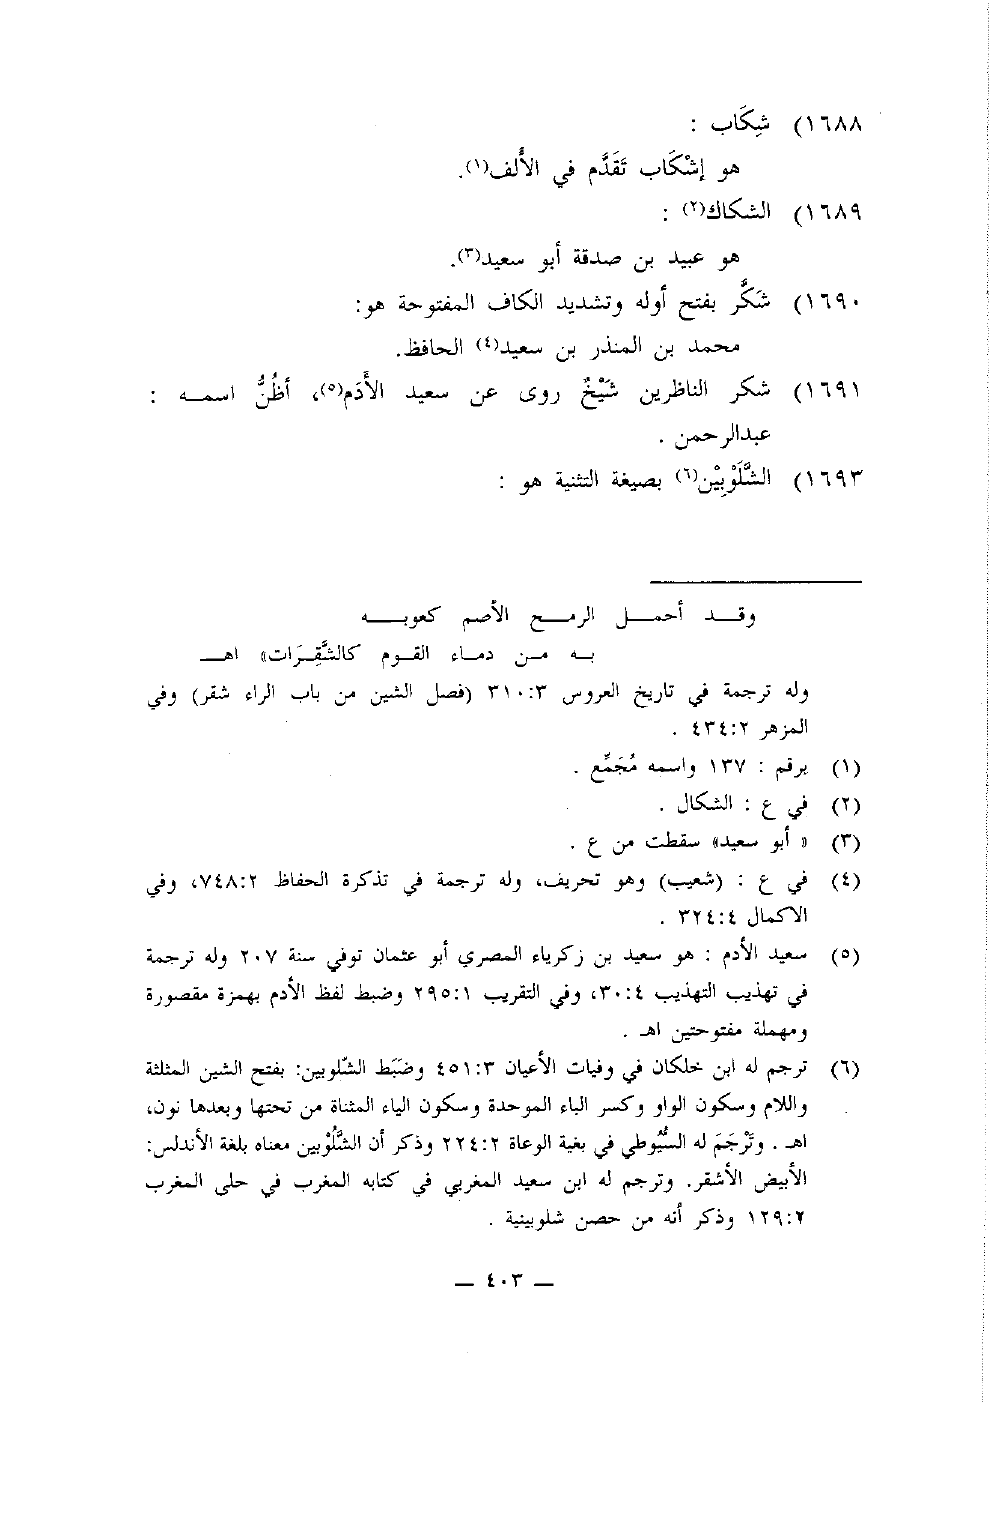 ١٦٨٨) شِكَاب :
هو إشْكَاب تَقَدَّم في الأَلف(١).
١٦٨٩) الشكاك(٢) :
هو عبيد بن صدقة أبو سعيد(٣).
١٦٩٠) شَكَّر بفتح أوله وتشديد الكاف المفتوحة هو:
محمد بن المنذر بن سعيد(٤) الحافظ.
١٦٩١) شكر الناظرين شَيْخٌ روى عن سعيد الأَدَم(٥)، أظُنُّ اسمه :
عبدالرحمن .
١٦٩٣) الشَّلَوْبِيْن(٦) بصيغة التثنية هو :
وقد أحمل الرمح الأصم كعوبه
به من دماء القوم كالشَّقِرَات» اهـ
وله ترجمة في تاريخ العروس ٣١٠:٣ (فصل الشين من باب الراء شقر) وفي
المزهر ٤٣٤:٢ .
(١) برقم : ١٣٧ واسمه مُجَمِّع .
(٢) في ع : الشكال .
(٣) « أبو سعيد» سقطت من ع .
(٤) في ع : (شعيب) وهو تحريف، وله ترجمة في تذكرة الحفاظ ٧٤٨:٢، وفي
الاكمال ٣٢٤:٤ .
(٥) سعيد الأدم : هو سعيد بن زكرياء المصري أبو عثمان توفي سنة ٢٠٧ وله ترجمة
في تهذيب التهذيب ٣٠:٤، وفي التقريب ٢٩٥:١ وضبط لفظ الأدم بهمزة مقصورة
ومهملة مفتوحتين اهـ .
(٦) ترجم له ابن خلكان في وفيات الأعيان ٤٥١:٣ وضَبَط الشّلوبين: بفتح الشين المثلثة
واللام وسكون الواو وكسر الباء الموحدة وسكون الياء المثناة من تحتها وبعدها نون،
اهـ . وتَرْجَمَ له السُّيُوطي في بغية الوعاة ٢٢٤:٢ وذكر أن الشَّلُوْبين معناه بلغة الأندلس:
الأبيض الأشقر. وترجم له ابن سعيد المغربي في كتابه المغرب في حلى المغرب
١٢٩:٢ وذكر أنه من حصن شلوبينية .
— ٤٠٣ —